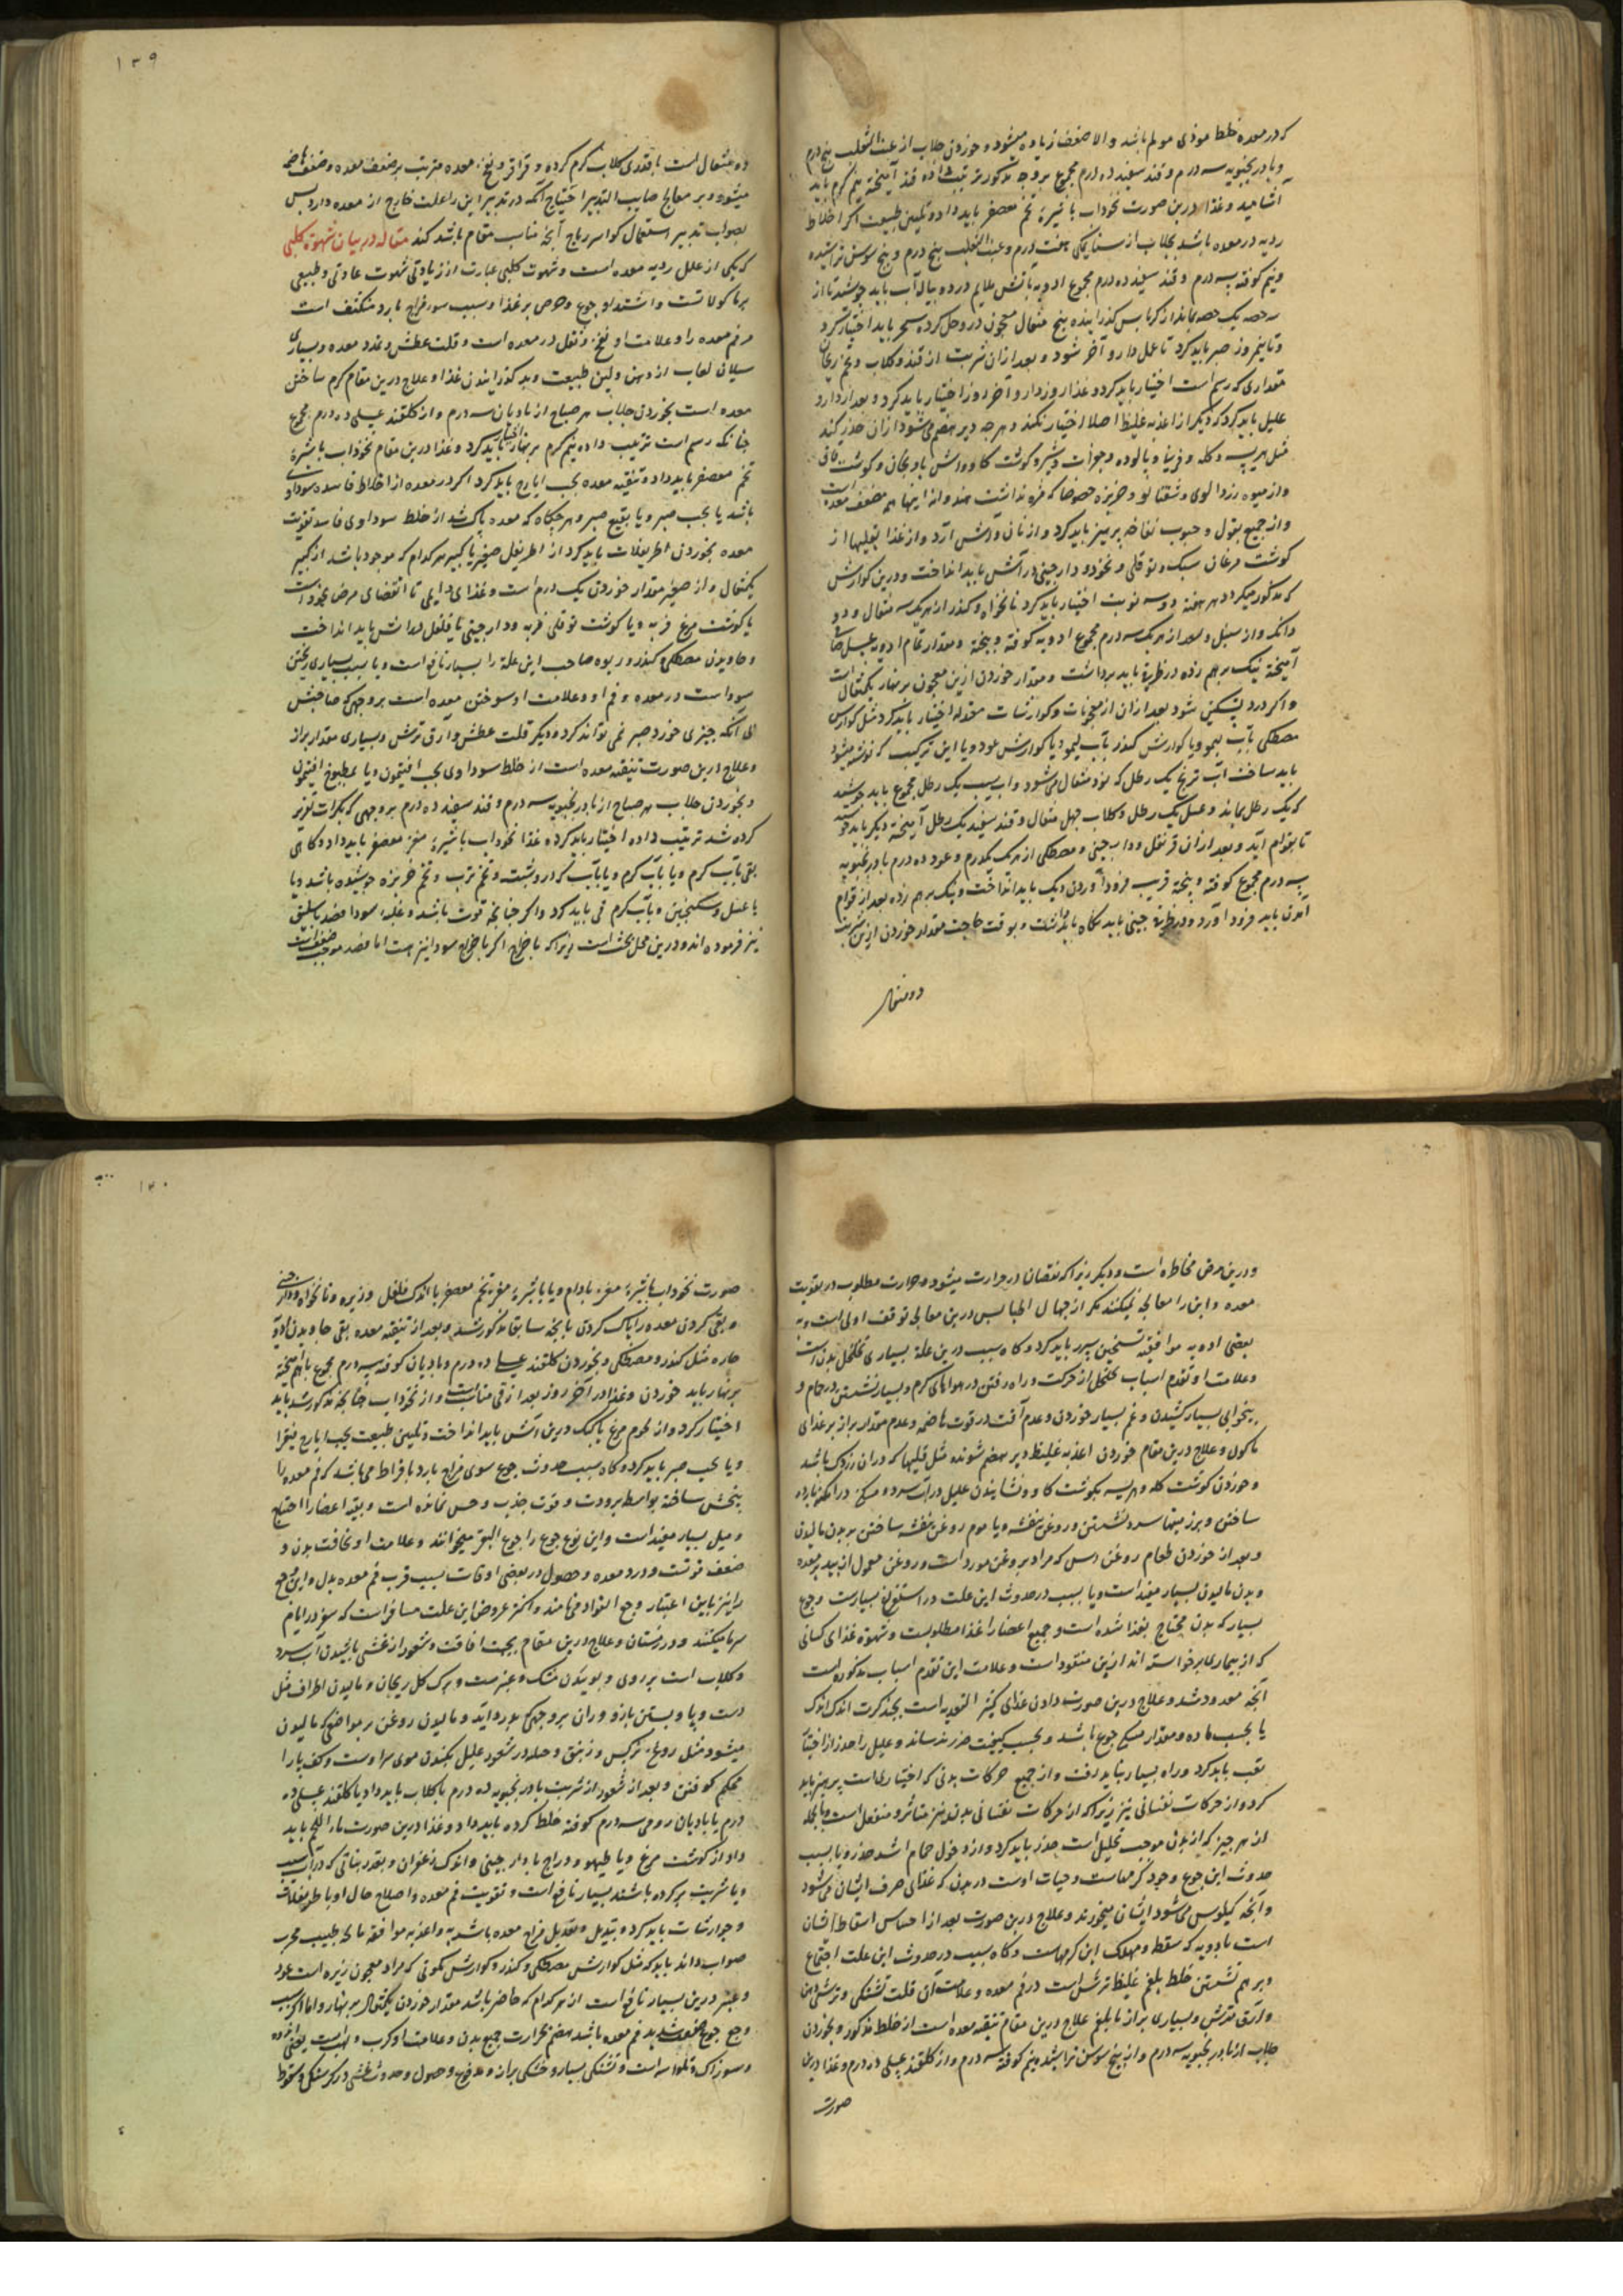 که در معده خلط موذی مولم باشد والا ضعف زیاده میشود و خوردن جلاب از عنب الثعلب پنج درم
و بادرنجبویه سه درم و قند سفید ده درم مجموع بروجه مذکور ترتیب داده قند آمیخته نیم گرم باید
آشامید و غذا درین صورت نخوداب با شیره تخم معصفر باید داد و تلیین طبیعت اگر اخلاط
ردیه در معده باشد بجلاب از سنای مکی هفت درم و عنب الثعلب پنج درم و بیخ سوسن تراشیده
و نیم کوفته سه درم و قند سفید ده درم مجموع ادویه بآتش ملایم در ده پیاله آب باید جوشید تا از
سه حصه یک حصه بماند از کرباس گذرانیده پنج مثقال معجون در وحل کرده سحر باید اختیار کرد
و تا نیمروز صبر باید کرد تا عمل دارو آخر شود و بعد از آن شربت از قند و گلاب و تخم ریحان
مقداری که رسم است اختیار باید کرد و غذا روز دارو آخر روز اختیار باید کرد و بعد از دارو
علیل باید کرد که دیگر از اغذیه غلیظ اصلا اختیار نکند و هرچه دیر هضم می‌شود از آن حذر کند
مثل هریسه و کله و فرینا و پالوده و جغرات و شیر و گوشت گاو و آش بادنجان و گوشت ماهی
و از میوه زردآلوی و شفتالو و خربزه خصوصا که مزه نداشته و هندوانه اینها هم مضعف معده است
و از جمیع بقول و حبوب نفاخه پرهیز باید کرد و از نان و آش آرد و از غذا بقلیها از
گوشت مرغان سبک و توقلی و نخود و دارچینی در آتش باید انداخت و درین گوارش
که مذکور میگردد هر هفته دو سه نوبت اختیار باید کرد نانخواه و کندر از هر یک سه مثقال و دو
دانگ و از سنبل و سعد از هر یک سه درم مجموع ادویه کوفته و بیخته و مقدار تمام ادویه عسل صاف
آمیخته نیک برهم زده در ظرف باید برداشت و مقدار خوردن ازین معجون بر نهار یکمثقال است
و اگر درد تسکین شود بعد از آن از معجونات و گوارشات معتدله اختیار باید کرد مثل گوارش
مصطکی بآب لیمو و یا گوارش کندر بآب لیمو و یا گوارش عود و یا این ترکیب که نوشته میشود
باید ساخت آب ترنج یک رطل که نود مثقال میشود و آب سیب یک رطل مجموع باید جوشید
که یک رطل بماند و عسل یک رطل و گلاب چهل مثقال و قند سفید یک رطل آمیخته دیگر باید جوشید
تا بقوام آید و بعد از آن قرنفل و دارچینی و مصطکی از هر یک یکدرم و عود ده درم بادرنجبویه
سه درم مجموع کوفته و بیخته قریب فرود آوردن دیک باید انداخت و نیک برهم زده بعد از قوام
آمدن باید فرود آورد و در ظرف چینی باید نگاه باید داشت و بوقت حاجت مقدار خوردن ازین شربت
دو مثقال
۱۳۹
ده مثقال است با قدری گلاب گرم کرده و قراقر و نفخ معده مترتب بر ضعف معده و ضعف هاضمه
میشود و بر معالج صایب التدبیر احتیاج آنکه در تدبیر این را علت خارج از معده دارد پس
بصواب تدبیر استعمال کواسر ریاح آنچه مناسب مقام باشد کند مقاله در بیان شهوة کلبی
که یکی از علل ردیه معده است و شهوت کلبی عبارت از زیادتی شهوت عادتی و طبیعی
بر ماکولاتست و اشتداد جوع و حرص بر غذا و سبب سوء مزاج بارد متکثف است
مر فم معده را و علامت او نفخ و ثقل در معده است و قلت عطش و تمدد معده و بسیاری
سیلان لعاب از دهن و لین طبیعت و بد گذرانیدن غذا و علاج درین مقام گرم ساختن
معده است بخوردن جلاب هر صباح از بادیان سه درم و از گلقند عسلی ده درم مجموع
چنانکه رسم است ترتیب داده نیم گرم بر نهار اختیار باید کرد و غذا درین مقام نخوداب با شیره
تخم معصفر باید داد و تنقیه معده بحب ایارج باید کرد اگر در معده از اخلاط فاسده سوداوی
باشد یا بحب صبر و یا بقیع صبر و هر چکاه که معده پاک شد از خلط سوداوی فاسد تقویت
معده بخوردن اطریفلات باید کرد از اطریفل صغیر یا کبیر هر کدام که موجود باشد از کبیر
یکمثقال و از صغیر مقدار خوردن یک درم است و غذای دایمی تا انقضای مرض نخوداب
با گوشت مرغ فربه و یا گوشت توقلی فربه و دارچینی تا فلفل در آتش باید انداخت
و خاویدن مصطکی و کندر و ریوه صاحب این علة را بسیار نافع است و یا سبب بسیاری ریختن
سوداست در معده و فم او و علامت او سوختن معده است بروجهی که صاحبش
الی آنکه چیزی خورد صبر نمی تواند کرد و دیگر قلت عطش و آرق ترش و بسیاری مقدار براز
و علاج درین صورت تنقیه معده است از خلط سوداوی بحب افتیمون و یا بمطبوخ افتیمون
و بخوردن جلاب هر صباح از بادرنجبویه سه درم و قند سفید ده درم بروجهی که بکرات تقریر
کرده شد ترتیب داده اختیار باید کرد و غذا نخوداب با شیره مغز معصفر باید داد و گاهی
بقی بآب گرم و یا بآب گرم و یا بآب که درو شبت و تخم ترب و تخم خربزه جوشیده باشد و یا
با عسل و سکنجبین و بآب گرم قی باید کرد و اگر چنانچه قوت باشد و غلبه سودا فصد باسلیق
نیز فرموده‌اند و درین محل بحث است زیرا که باخراج اگر باخراج سودا نیز هست اما فصد موجب ضعف است
ودرین مرض مخاطره است و دیگر زیرا که نقصان در حرارت میشود و حرارت مطلوب در تقویت
معده و این را معالجه نمیکنند مگر از جهال اطبا پس درین معالج توقف اولی است و به
بعضی ادویه موافقه تسخین پسر باید کرد و گاه سبب درین علة بسیاری تخلخل بدن است
و علامت او تقدم اسباب تخلخل از حرکت و راه رفتن در هواهای گرم و بسیار نشستن در حمام و
بیخوابی بسیار کشیدن و غم بسیار خوردن و عدم آفت در قوت هاضمه و عدم مقدار براز بر غذای
ماکول و علاج درین مقام خوردن اغذیه غلیظ دیر هضم شونده مثل قلیها که در آن زردک باشد
و خوردن گوشت کله و هریسه بگوشت گاو و نشاندن علیل در آب سرد و مسکن در امکنه بارده
ساختن و بر زمینهای سرد نشستن و روغن بنفشه و یا موم روغن بنفشه ساختن بر بدن مالیدن
و بعد از خوردن طعام روغن آس که مراد بروغن مورد است و روغن معمول از بید بر معده
و بدن مالیدن بسیار مفید است و یا سبب در حدوث این علت در استفراغ بسیارست و جوع
بسیار که بدن محتاج بغذا شده است و جمیع اعضا را غذا مطلوبست و شهوة غذای کسانی
که از بیماری برخواسته‌اند ازین مقوله است و علامت این تقدم اسباب مذکوره است
آنچه معدود شد و علاج درین صورت دادن غذای کثیر التغذیه است بچند کرت اندک اندک
یا بحسب ماده و مقدار مسکن جوع باشد و بحسب کیفیت ضرر نرساند و علیل را حذر از اختیار
تعب باید کرد و راه بسیار نباید رفت و از جمیع حرکات بدنی که اختیاری است پرهیز باید
کرد و از حرکات نفسانی نیز زیرا که از حرکات نفسانی بدن نیز متاثر و منفعل است و بالجمله
از هر چیز که از بدن موجب تحلیل است حذر باید کرد و از دخول حمام اشد حذر و یا سبب
حدوث این جوع وجود کرمهاست و حیات اوست در بدن که غذای صرف ایشان می‌شود
و آنچه کیلوس می‌شود ایشان میخورند و علاج درین صورت بعد از احساس اسقاط ایشان
است بادویه که مسقط و مهلک این کرمهاست و گاه سبب در حدوث این علت اجتماع
و برهم نشستن خلط بلغم غلیظ ترش است در فم معده و علامت آن قلت تشنگی و ترشی دهن
و آرق ترش و بسیاری براز با بلغم علاج درین مقام تنقیه معده است از خلط مذکور و بخوردن
جلاب از بادرنجبویه سه درم و از بیخ سوسن تراشیده نیم کوفته سه درم و از گلقند عسلی ده درم و غذا درین
صورت
۱۴۰
صورت نخوداب با شیره مغز بادام و یا با شیره مغز تخم معصفر با اندک فلفل و زیره و نانخواه و دارچینی
و بقی کردن معده را پاک کردن بآنچه سابقا مذکور شد و بعد از تنقیه معده بقی خاویدن ادویه
حاره مثل کندر و مصطکی و بخوردن گلقند عسلی ده درم و بادیان کوفته سه درم مجموع باهم آمیخته
بر نهار باید خوردن و غذا در آخر روز بعد از قی مناسب است و از نخوداب چنانچه مذکور شد باید
اختیار کرد و از لحوم مرغ یا کبک درین آتش باید انداخت و تلیین طبیعت بحب ایارج فیقرا
و یا بحب صبر باید کرد و گاه سبب حدوث جوع سوی مزاج بارد بافراط می‌باشد که فم معده را
بیحس ساخته بواسطه برودت و قوت جذب و حس نمانده است و بقیه اعضا را احتیاج
و میل بسیار بغذاست و این نوع جوع را جوع البقر میخوانند و علامت او نحافت بدن و
ضعف قوتست و درد معده و حصول در بعضی اوقات بسبب قرب فم معده بدل و این وجع
را نیز باین اعتبار وجع الفواد می‌نامند و اکثر عروض این علت مسافر است که سفر در ایام
سرما میکنند و در زمستان و علاج درین مقام بجهت افاقت و شعور از غشی پاشیدن آب سرد
و گلاب است بر روی و بویدن مشک و عنبر ست و برگ گل ریحان و مالیدن اطراف مثل
دست و پا و بستن بازو و ران بروجهی که بدرد آید و مالیدن روغن بر مواضعی که مالیدن
میشود مثل روغن نرگس و زنبق و حیله در شعور علیل بکندن موی سر اوست و کف پا را
محکم کوفتن و بعد از شعور از شربت بادرنجبویه ده درم با گلاب باید داد یا گلقند عسلی ده
درم یا بادیان رومی سه درم کوفته خلط کرده باید داد و غذا درین صورت ماء اللحم باید
داد از گوشت مرغ و یا طیهو و دراج با دارچینی و اندک زعفران و بقدر بناتی که در آب سیب
و یا شربت پرکرده باشند بسیار نافع است و تقویت فم معده و اصلاح حال او باطریفلات
و جوارشات باید کرد و تبدیل و تعدیل مزاج معده باشربه و اغذیه موافقه صالحه طبیب مجرب
صواب داند باید که مثل گوارش مصطکی و کندر و گوارش کمونی که مراد معجون زیره است عود
و عنبر درین بسیار نافع است از هر کدام که حاضر باشد مقدار خوردن یکمثقال بر نهار و اما اگر سبب
وجع جوع ضعف شدید فم معده باشد بهضم بحرارت جمیع بدن و علامت او کرب و لهب است یعنی اندوه
و سوزاک و تلواسه است و تشنگی بسیار و خشکی براز و مدفوع و حصول و حدوث غشی در گرسنگی و سقوط